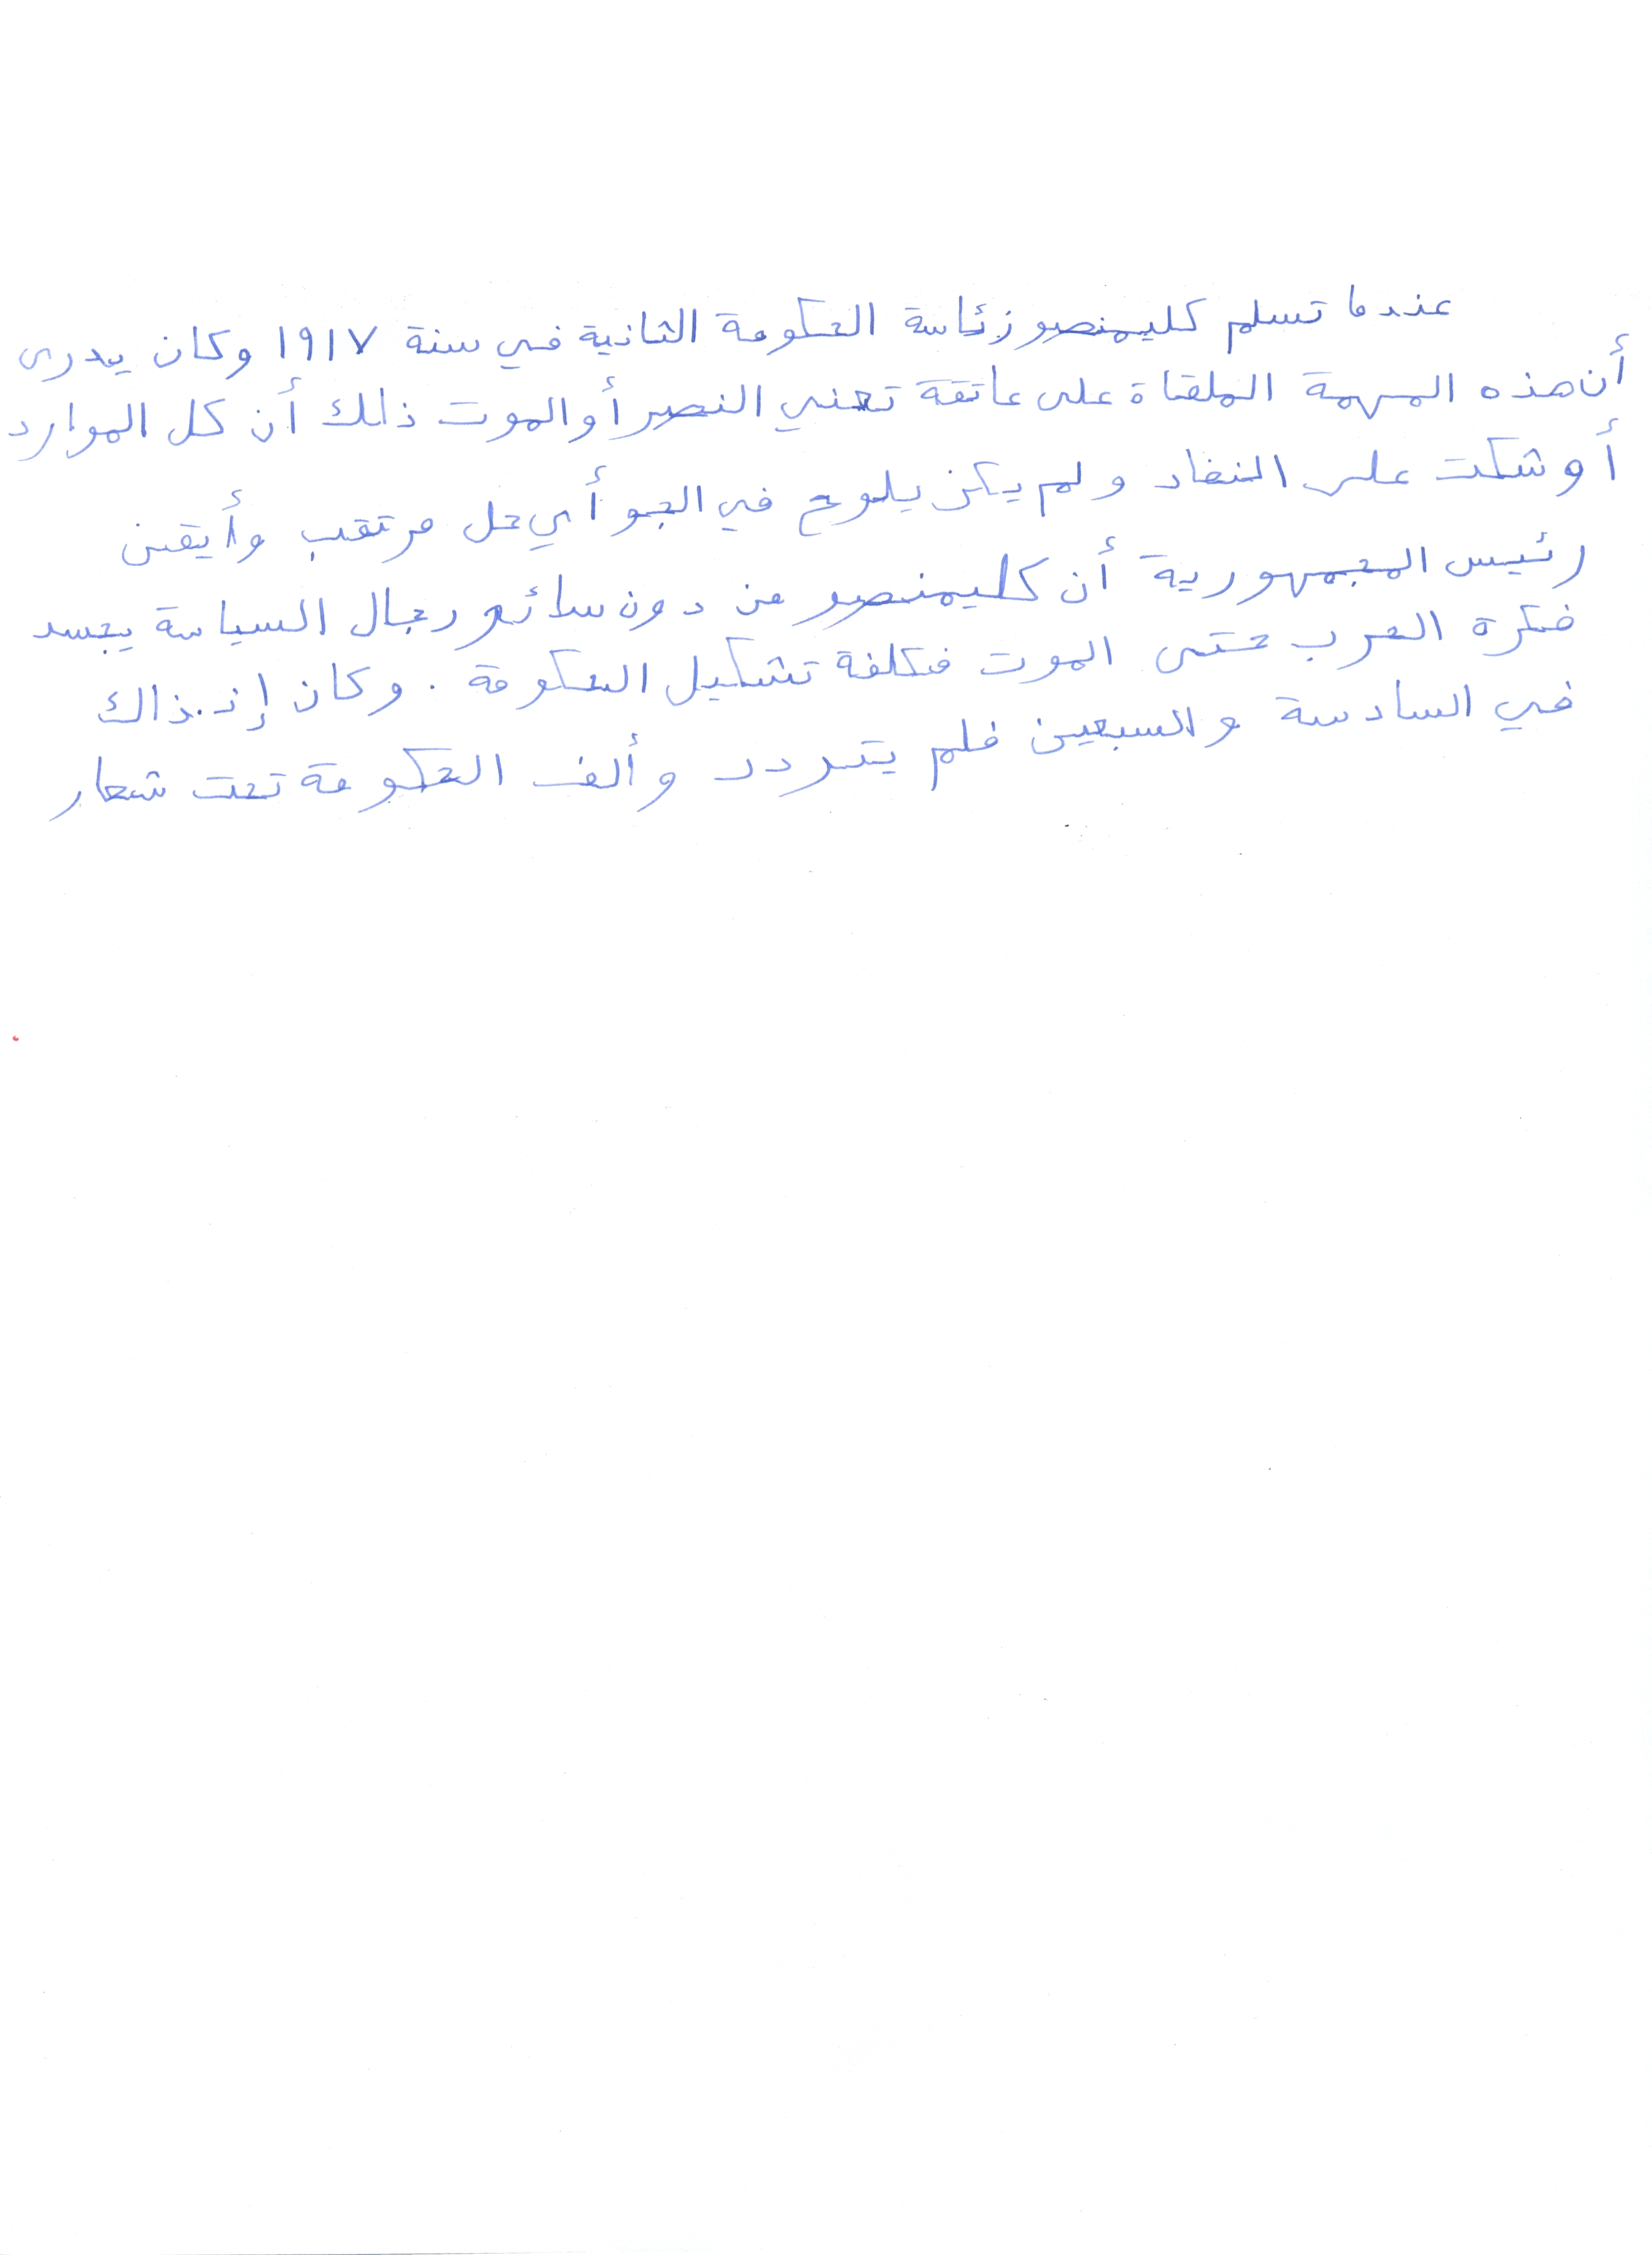 عندما تسلم كليمنصو رئاسة الحكومة الثانية في سنة ١٩١٧ وكان يدرى
أن هذه المهمة الملقاة على عاتقة تعني النصر أو الموت ذلك أن كل الموارد
أوشكت على النفاد ولم يكن يلوح في الجو أي حل مرتقب وأيقن
رئيس الجمهورية أن كليمنصو من دون سائر رجال السياسة يجسد
فكرة الحرب حتى الموت فكلفة تشكيل الحكومة . وكان إذ ذاك
في السادسة والسبعين فلم يتردد وألف الحكومة تحت شعار